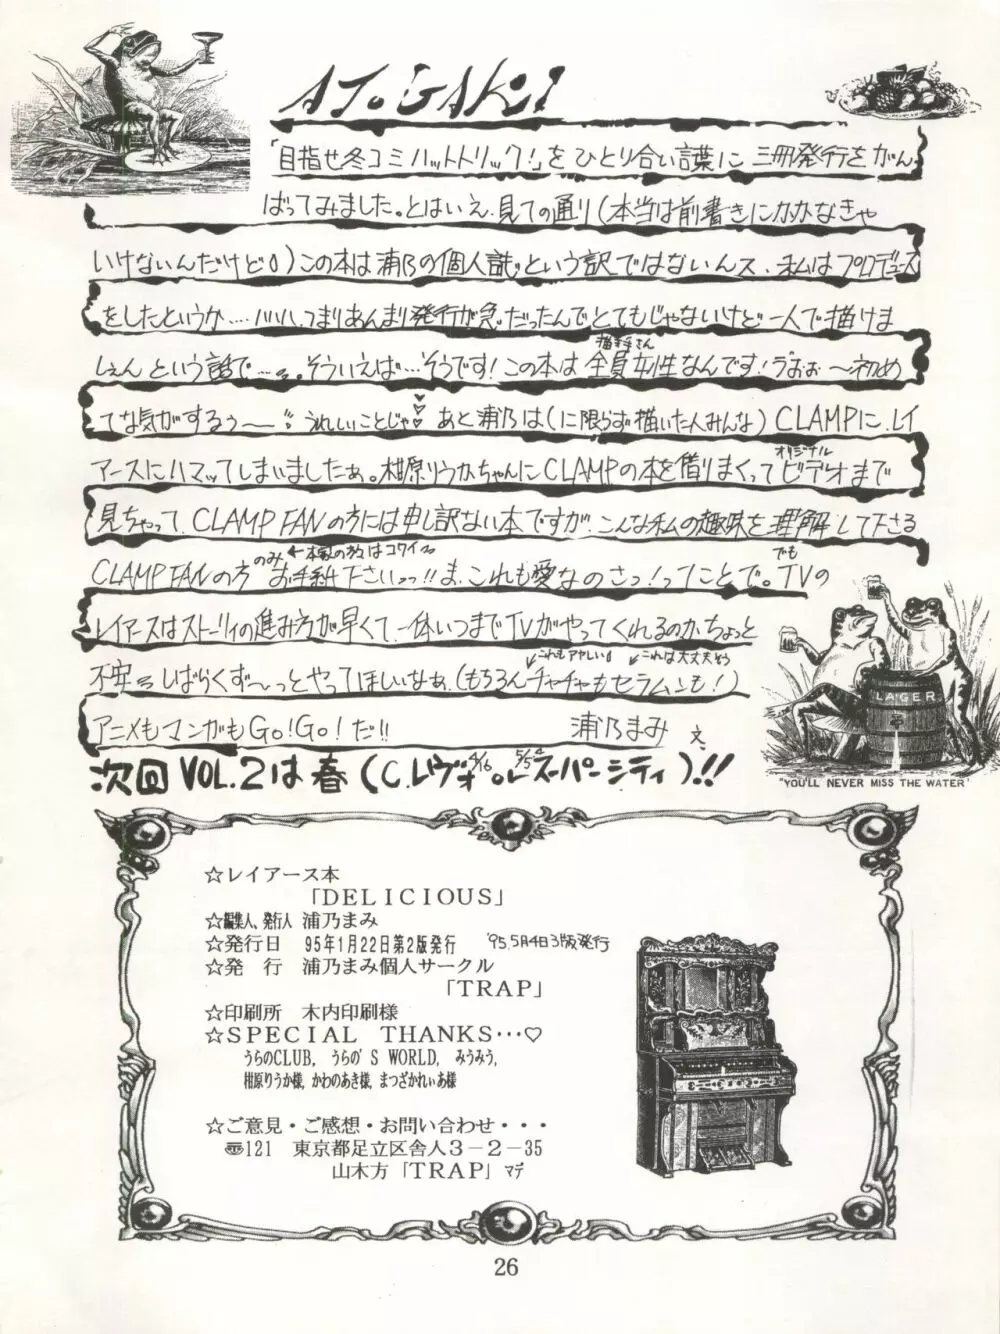 ATOGAKI
「目指せ冬コミハットトリック!」をひとり合い言葉に 三冊発行をがん
ばってみました。とはいえ、見ての通り(本当は前書きにかかなきゃ
いけないんだけど)この本は浦乃の個人誌という訳ではないんス、私はプロデュース
をしたというか…ハハハ、つまりあんまり発行が急だったんでとてもじゃないけど一人で描けま
描き手さん
しぇん という話で…。そういえば…そうです!この本は 全員女性なんです!うおぉ〜初め
てな気がするぅ〜 うれしいことじゃ♥ あと浦乃は(に限らず描いた人みんな)CLAMPに、レイ
オリジナル
アースにハマッてしまいましたぁ。柑原りうかちゃんにCLAMPの本を借りまくってビデオまで
見ちゃって、CLAMP FANの方には申し訳ない本ですが、こんな私の趣味を理解して下さる
のみ ←本家の方はコワイ でも
CLAMP FANの方 お手紙下さいっっ!!ま、これも愛なのさっ!ってことで。TVの
レイアースはストーリィの進み方が早くて、一体いつまでTVがやってくれるのか、ちょっと
これもアヤしい これは大丈夫そう
不安 しばらくず〜っとやってほしいなぁ、(もちろんチャチャもセラムンも!)
アニメもマンガもGo!Go!だ!! 浦乃まみ 文
次回 VOL.2は 春(C.レヴォ4/16 or 5/4 スーパーシティ)!!
LAGER
"YOU'LL NEVER MISS THE WATER"
☆レイアース本
「DELICIOUS」
☆編集人、発行人 浦乃まみ
☆発行日 95年1月22日第2版発行 '95.5月4日3版発行
☆発 行 浦乃まみ個人サークル
「TRAP」
☆印刷所 木内印刷様
☆SPECIAL THANKS…♡
うらのCLUB, うらの'S WORLD, みうみう,
柑原りうか様, かわのあき様, まつざかれぃあ様
☆ご意見・ご感想・お問い合わせ・・・
〠121 東京都足立区舎人3−2−35
山木方「TRAP」マデ
26